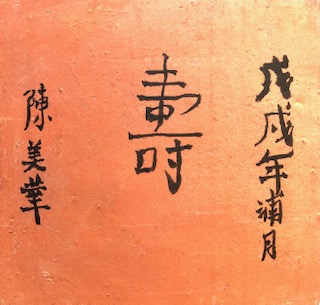 戊戌年補月
壽
陳美華